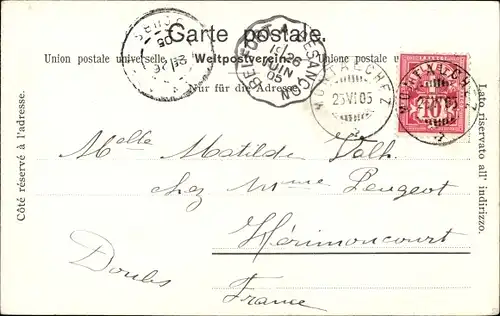 Carte postale.
Union postale universelle. Weltpostverein. Unione postale universale
Nur für die Adresse.
Côté réservé à l'adresse.
Lato riservato all' indirizzo.
BELFORT A BESANÇON
15/26
JUIN
05
MONTFAUCHEZ
25 VI 05
10
Melle Mathilde
chez Mme Peugeot
Hérimoncourt
Doubs
France